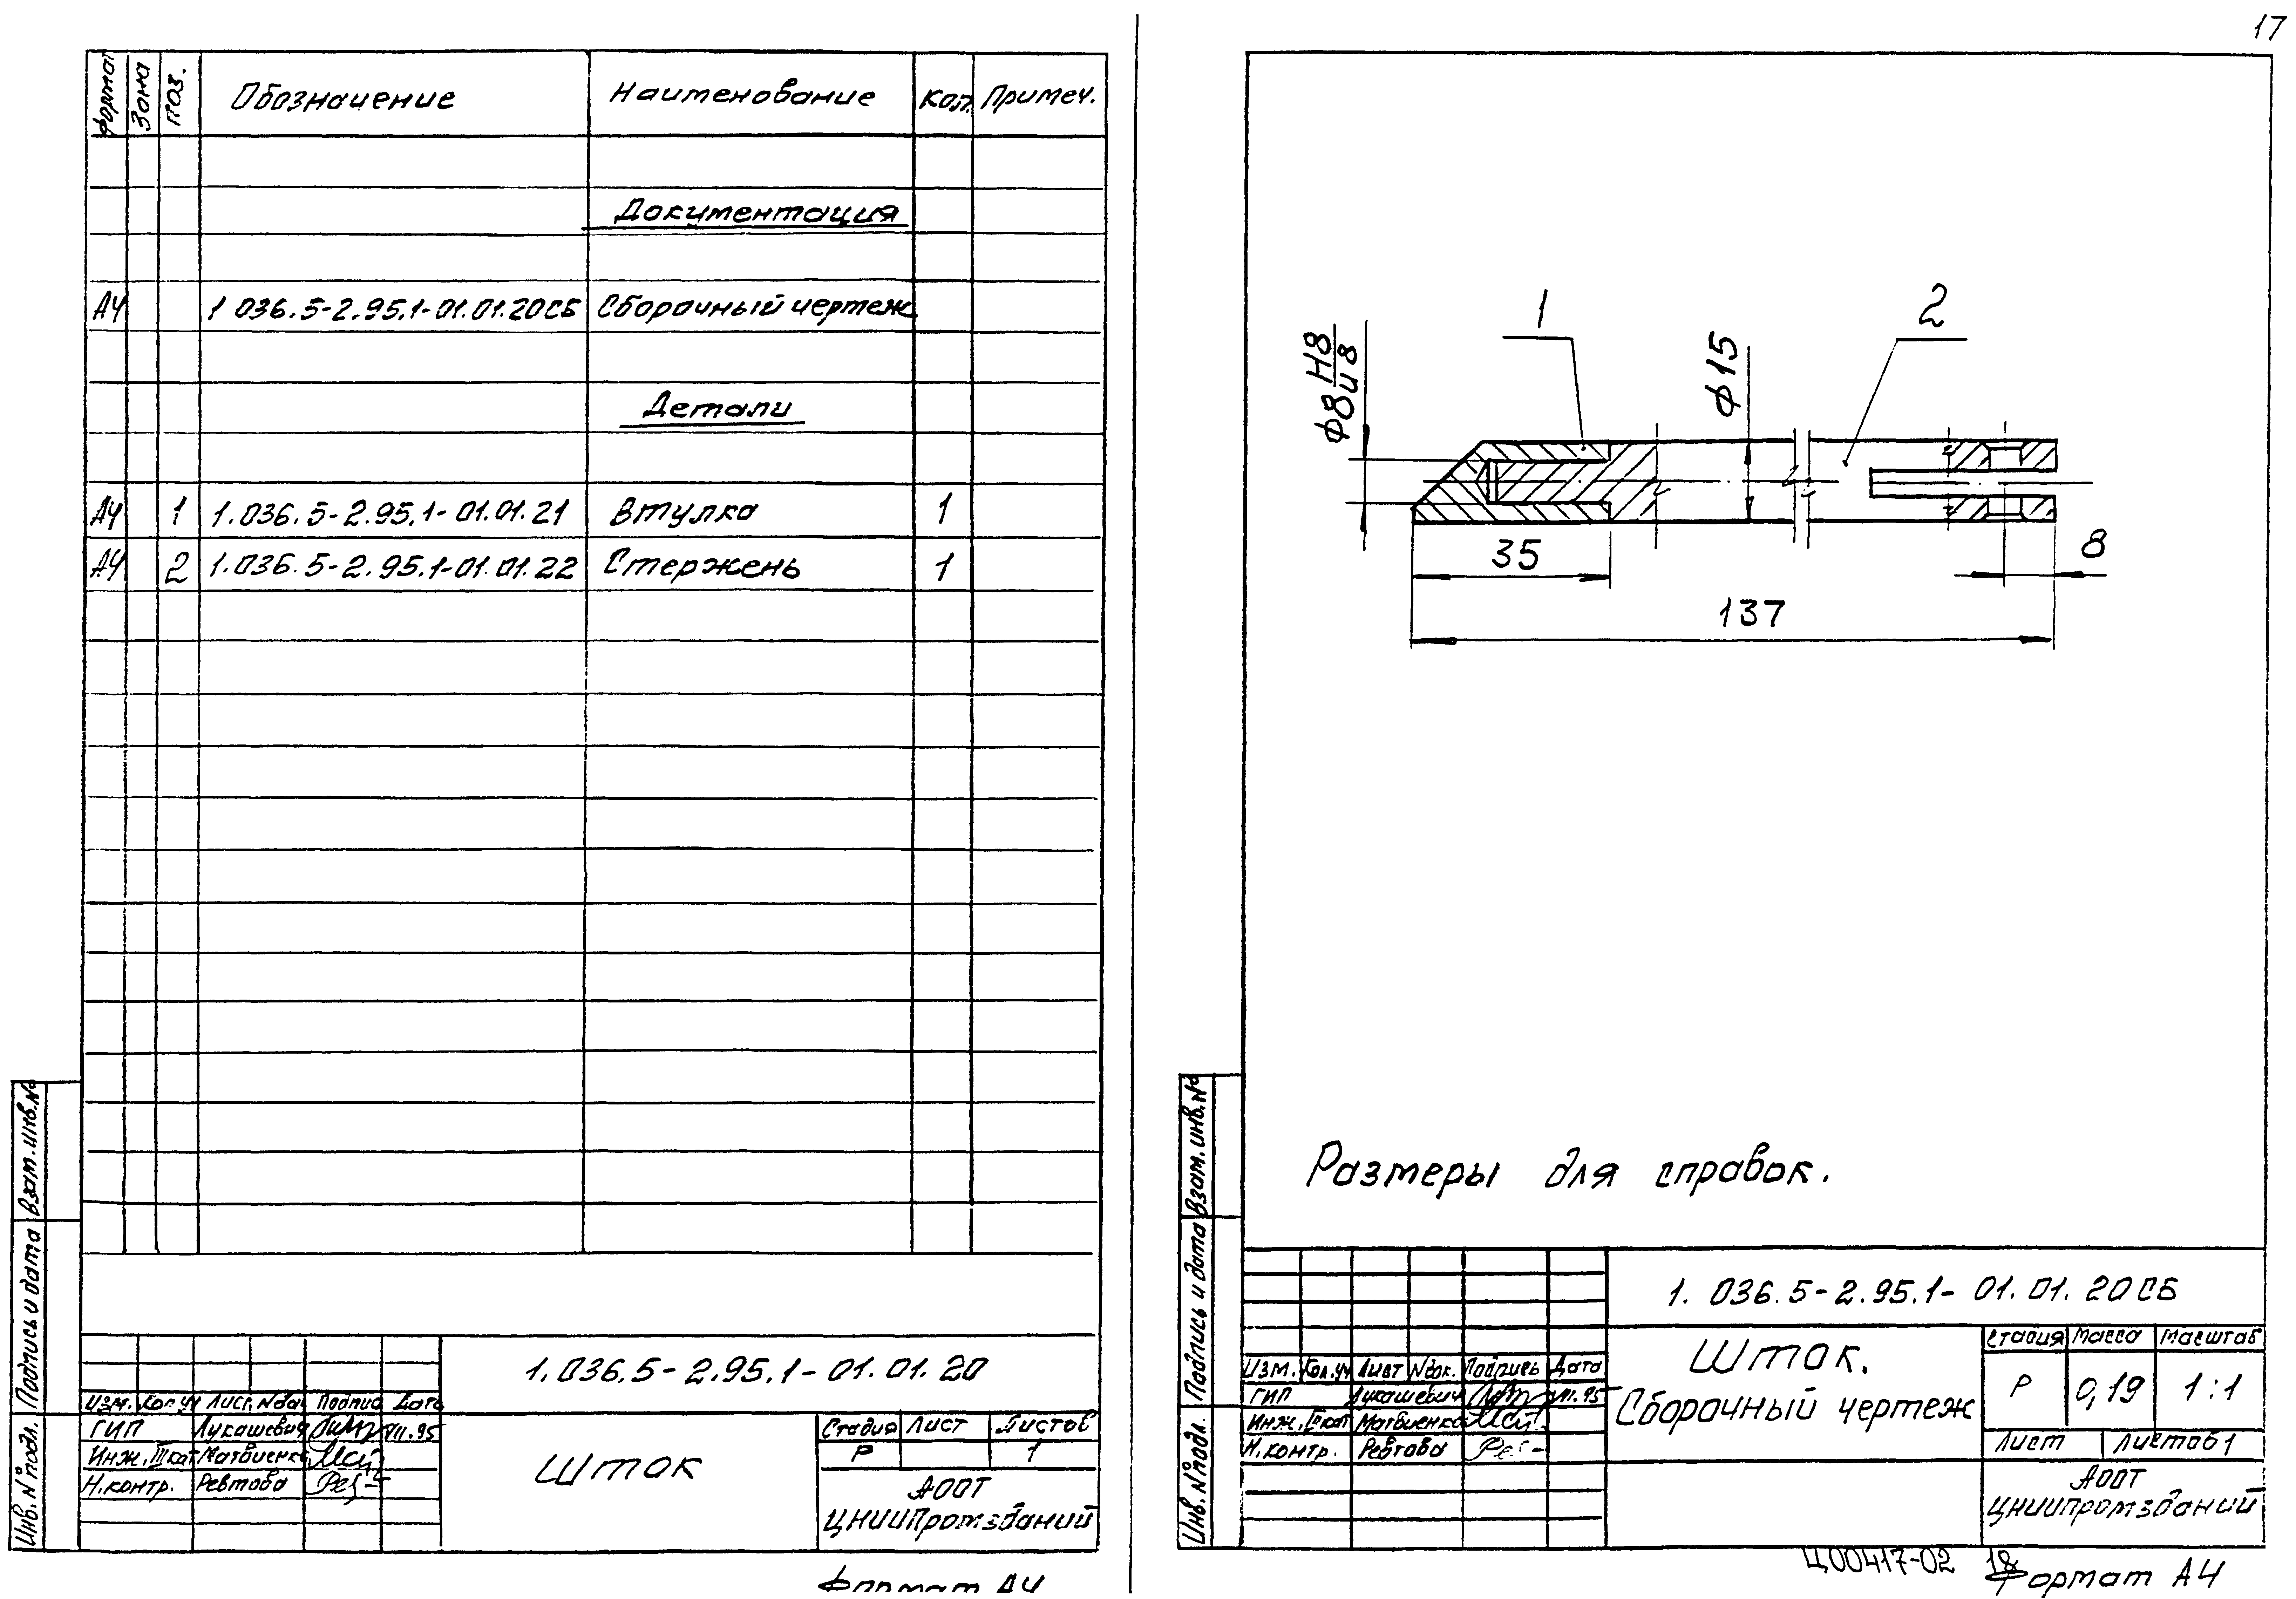 17
Формат Зона Поз. Обозначение Наименование Кол. Примеч.
Документация
А4 1.036.5-2.95.1-01.01.20СБ Сборочный чертеж
Детали
А4 1 1.036.5-2.95.1-01.01.21 Втулка 1
А4 2 1.036.5-2.95.1-01.01.22 Стержень 1
Взам. инв. №
Подпись и дата
Инв. № подл.
1.036.5-2.95.1-01.01.20
Изм. Кол.уч Лист №док Подпись Дата
ГИП Лукашевич VII.95
Инж. II кат Матвиенко
Н.контр. Ревтова
Шток
Стадия Лист Листов
Р 1
АООТ
ЦНИИПромзданий
Формат А4
1 2
Ф8 H8/u8
Ф15
35
8
137
Размеры для справок.
Взам. инв. №
Подпись и дата
Инв. № подл.
1.036.5-2.95.1-01.01.20СБ
Изм. Кол.уч Лист №док. Подпись Дата
ГИП Лукашевич VII.95
Инж. II кат Матвиенко
Н.контр. Ревтова
Шток.
Сборочный чертеж
Стадия Масса Масштаб
Р 0,19 1:1
Лист Листов 1
АООТ
ЦНИИпромзданий
Ц00417-02 18
Формат А4